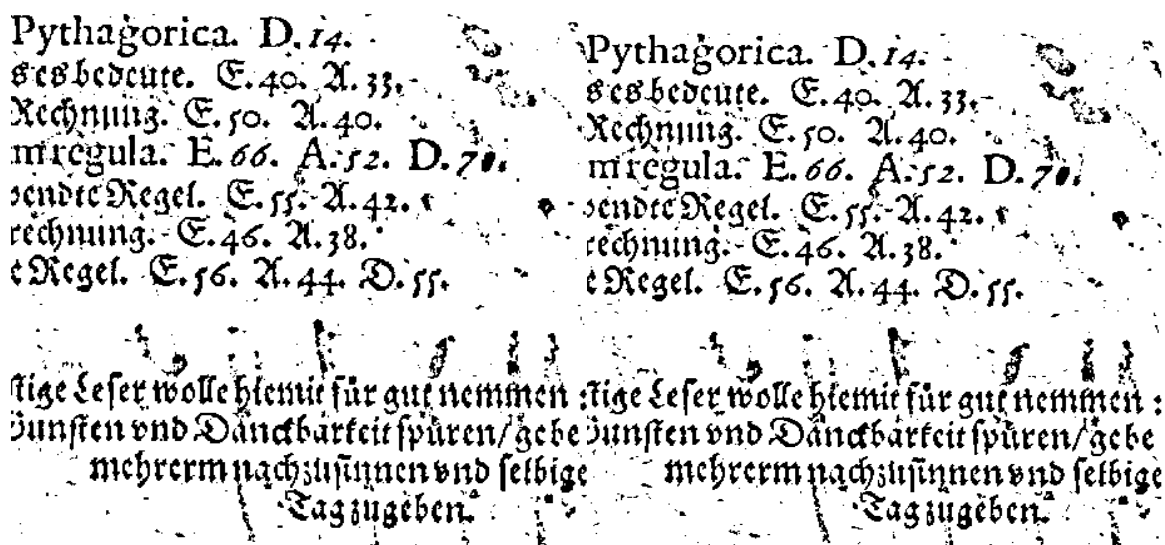 Pythagorica. D.14.
s es bedeute. E.40. A.33.
Rechnung. E.50. A.40.
m regula. E.66. A.52. D.70.
endte Regel. E.55. A.42.
rechnung. E.46. A.38.
e Regel. E.56. A.44. D.55.
stige Leser wolle hiemit für gut nemmen :
unsten vnd Dånckbarkeit spüren/ gebe
mehrerm nachzusinnen vnd selbige
Tag zugeben.
Pythagorica. D.14.
s es bedeute. E.40. A.33.
Rechnung. E.50. A.40.
m regula. E.66. A.52. D.70.
endte Regel. E.55. A.42.
rechnung. E.46. A.38.
e Regel. E.56. A.44. D.55.
stige Leser wolle hiemit für gut nemmen :
unsten vnd Dånckbarkeit spüren/ gebe
mehrerm nachzusinnen vnd selbige
Tag zugeben.